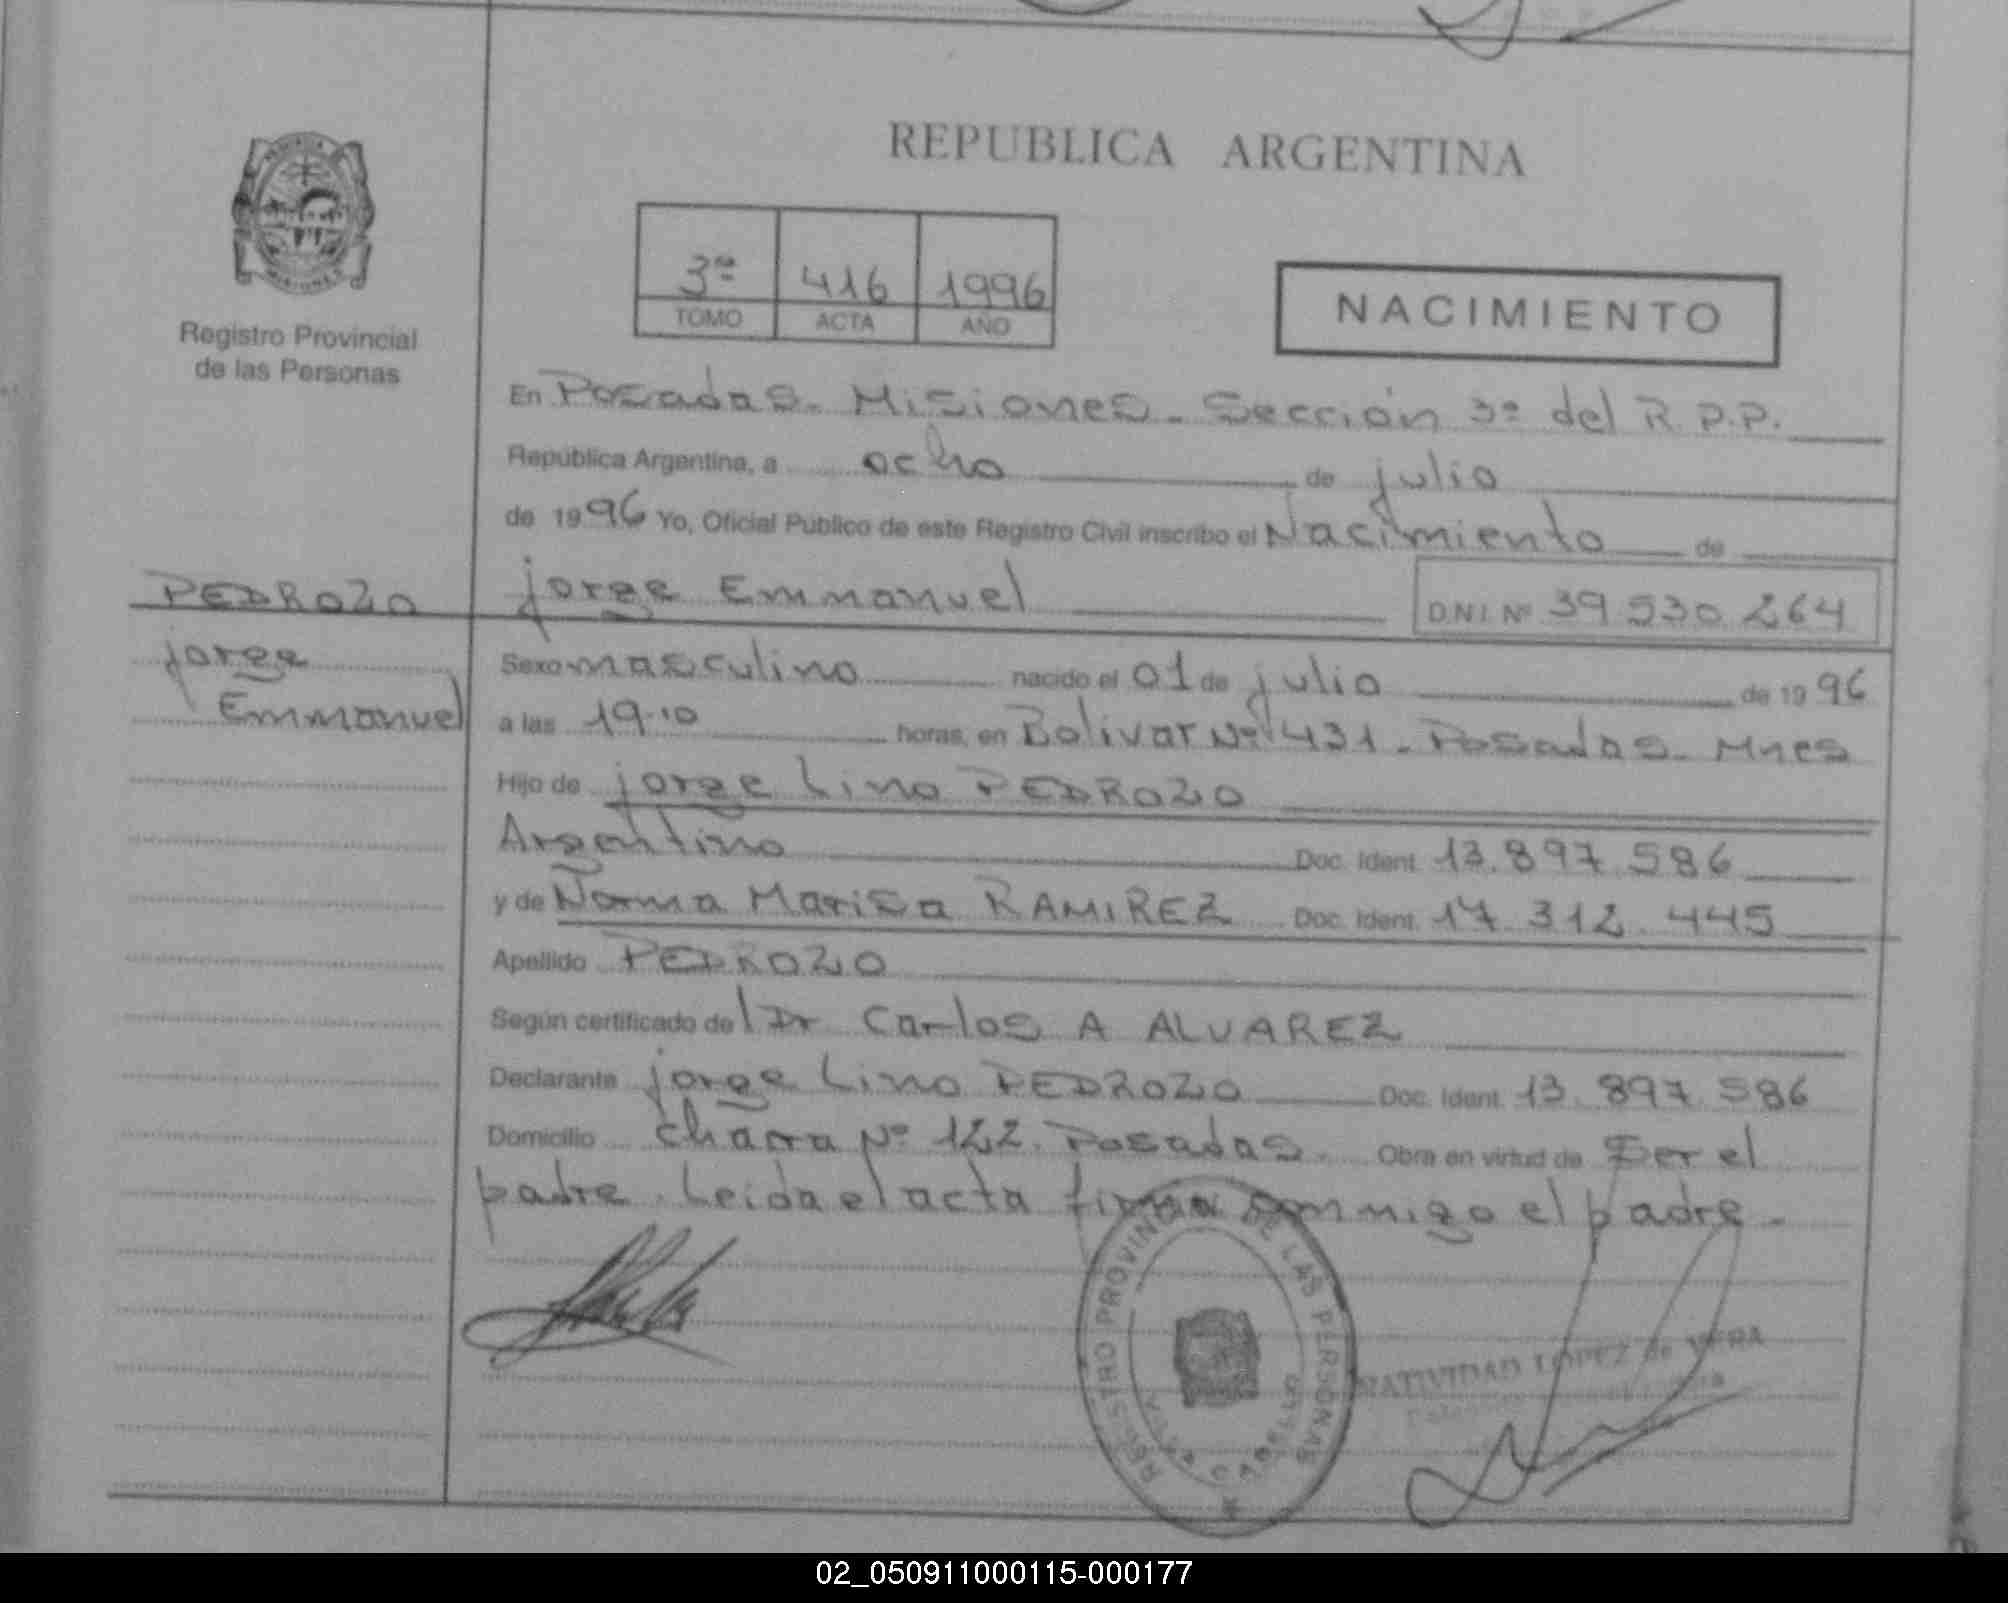 REPUBLICA ARGENTINA
Registro Provincial
de las Personas
3ro 416 1996
TOMO ACTA AÑO
NACIMIENTO
En Posadas - Misiones - Sección 3º del R.P.P.
República Argentina, a ocho de julio
de 1996 Yo, Oficial Público de este Registro Civil inscribo el Nacimiento de
PEDROZO
jorge
Emmanuel
jorge Emmanuel D.N.I. Nº 39 530 264
Sexo masculino nacido el 01 de julio de 1996
a las 19.10 horas, en Bolivar Nº 431 - Posadas - Mnes
Hijo de jorge Lino PEDROZO
Argentino Doc. Ident. 13.897.586
y de Norma Marisa RAMIREZ Doc. Ident. 17.312.445
Apellido PEDROZO
Según certificado del Dr Carlos A ALVAREZ
Declarante jorge Lino PEDROZO Doc. Ident. 13.897.586
Domicilio chacra Nº 122. Posadas. Obra en virtud de Ser el
padre. Leida el acta firma conmigo el padre.
REGISTRO PROVINCIAL DE LAS PERSONAS
NATIVIDAD LOPEZ de VERA
02_050911000115-000177